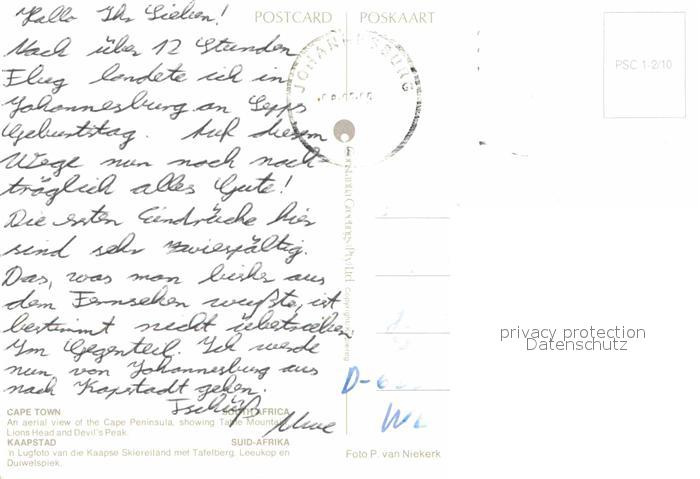 Hallo Ihr Lieben!
Nach über 12 Stunden
Flug landete ich in
Johannesburg an Sepps
Geburtstag. Auf diesem
Wege nun noch nach-
träglich alles Gute!
Die ersten Eindrücke hier
sind sehr zwiespältig.
Das, was man bisher aus
dem Fernsehen wußte, ist
bestimmt nicht übertrieben.
Im Gegenteil. Ich werde
nun von Johannesburg aus
nach Kapstadt gehen.
Tschüß
Uwe
POSTCARD POSKAART
JOHANNESBURG
PSC 1-2/10
Constantia Greetings (Pty) Ltd. Copyright
privacy protection
Datenschutz
D-6
CAPE TOWN SOUTH AFRICA
An aerial view of the Cape Peninsula, showing Table Mountain,
Lions Head and Devil's Peak.
KAAPSTAD SUID-AFRIKA
'n Lugfoto van die Kaapse Skiereiland met Tafelberg, Leeukop en
Duiwelspiek.
Foto P. van Niekerk